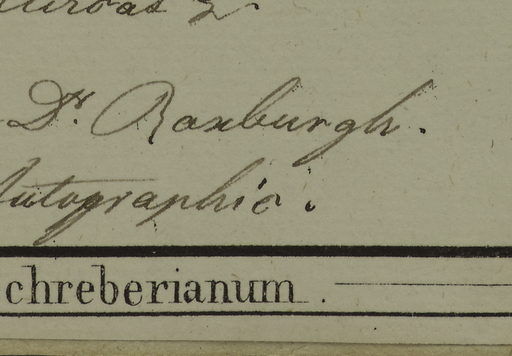 Dr. Roxburgh.
Autographic.
chreberianum.